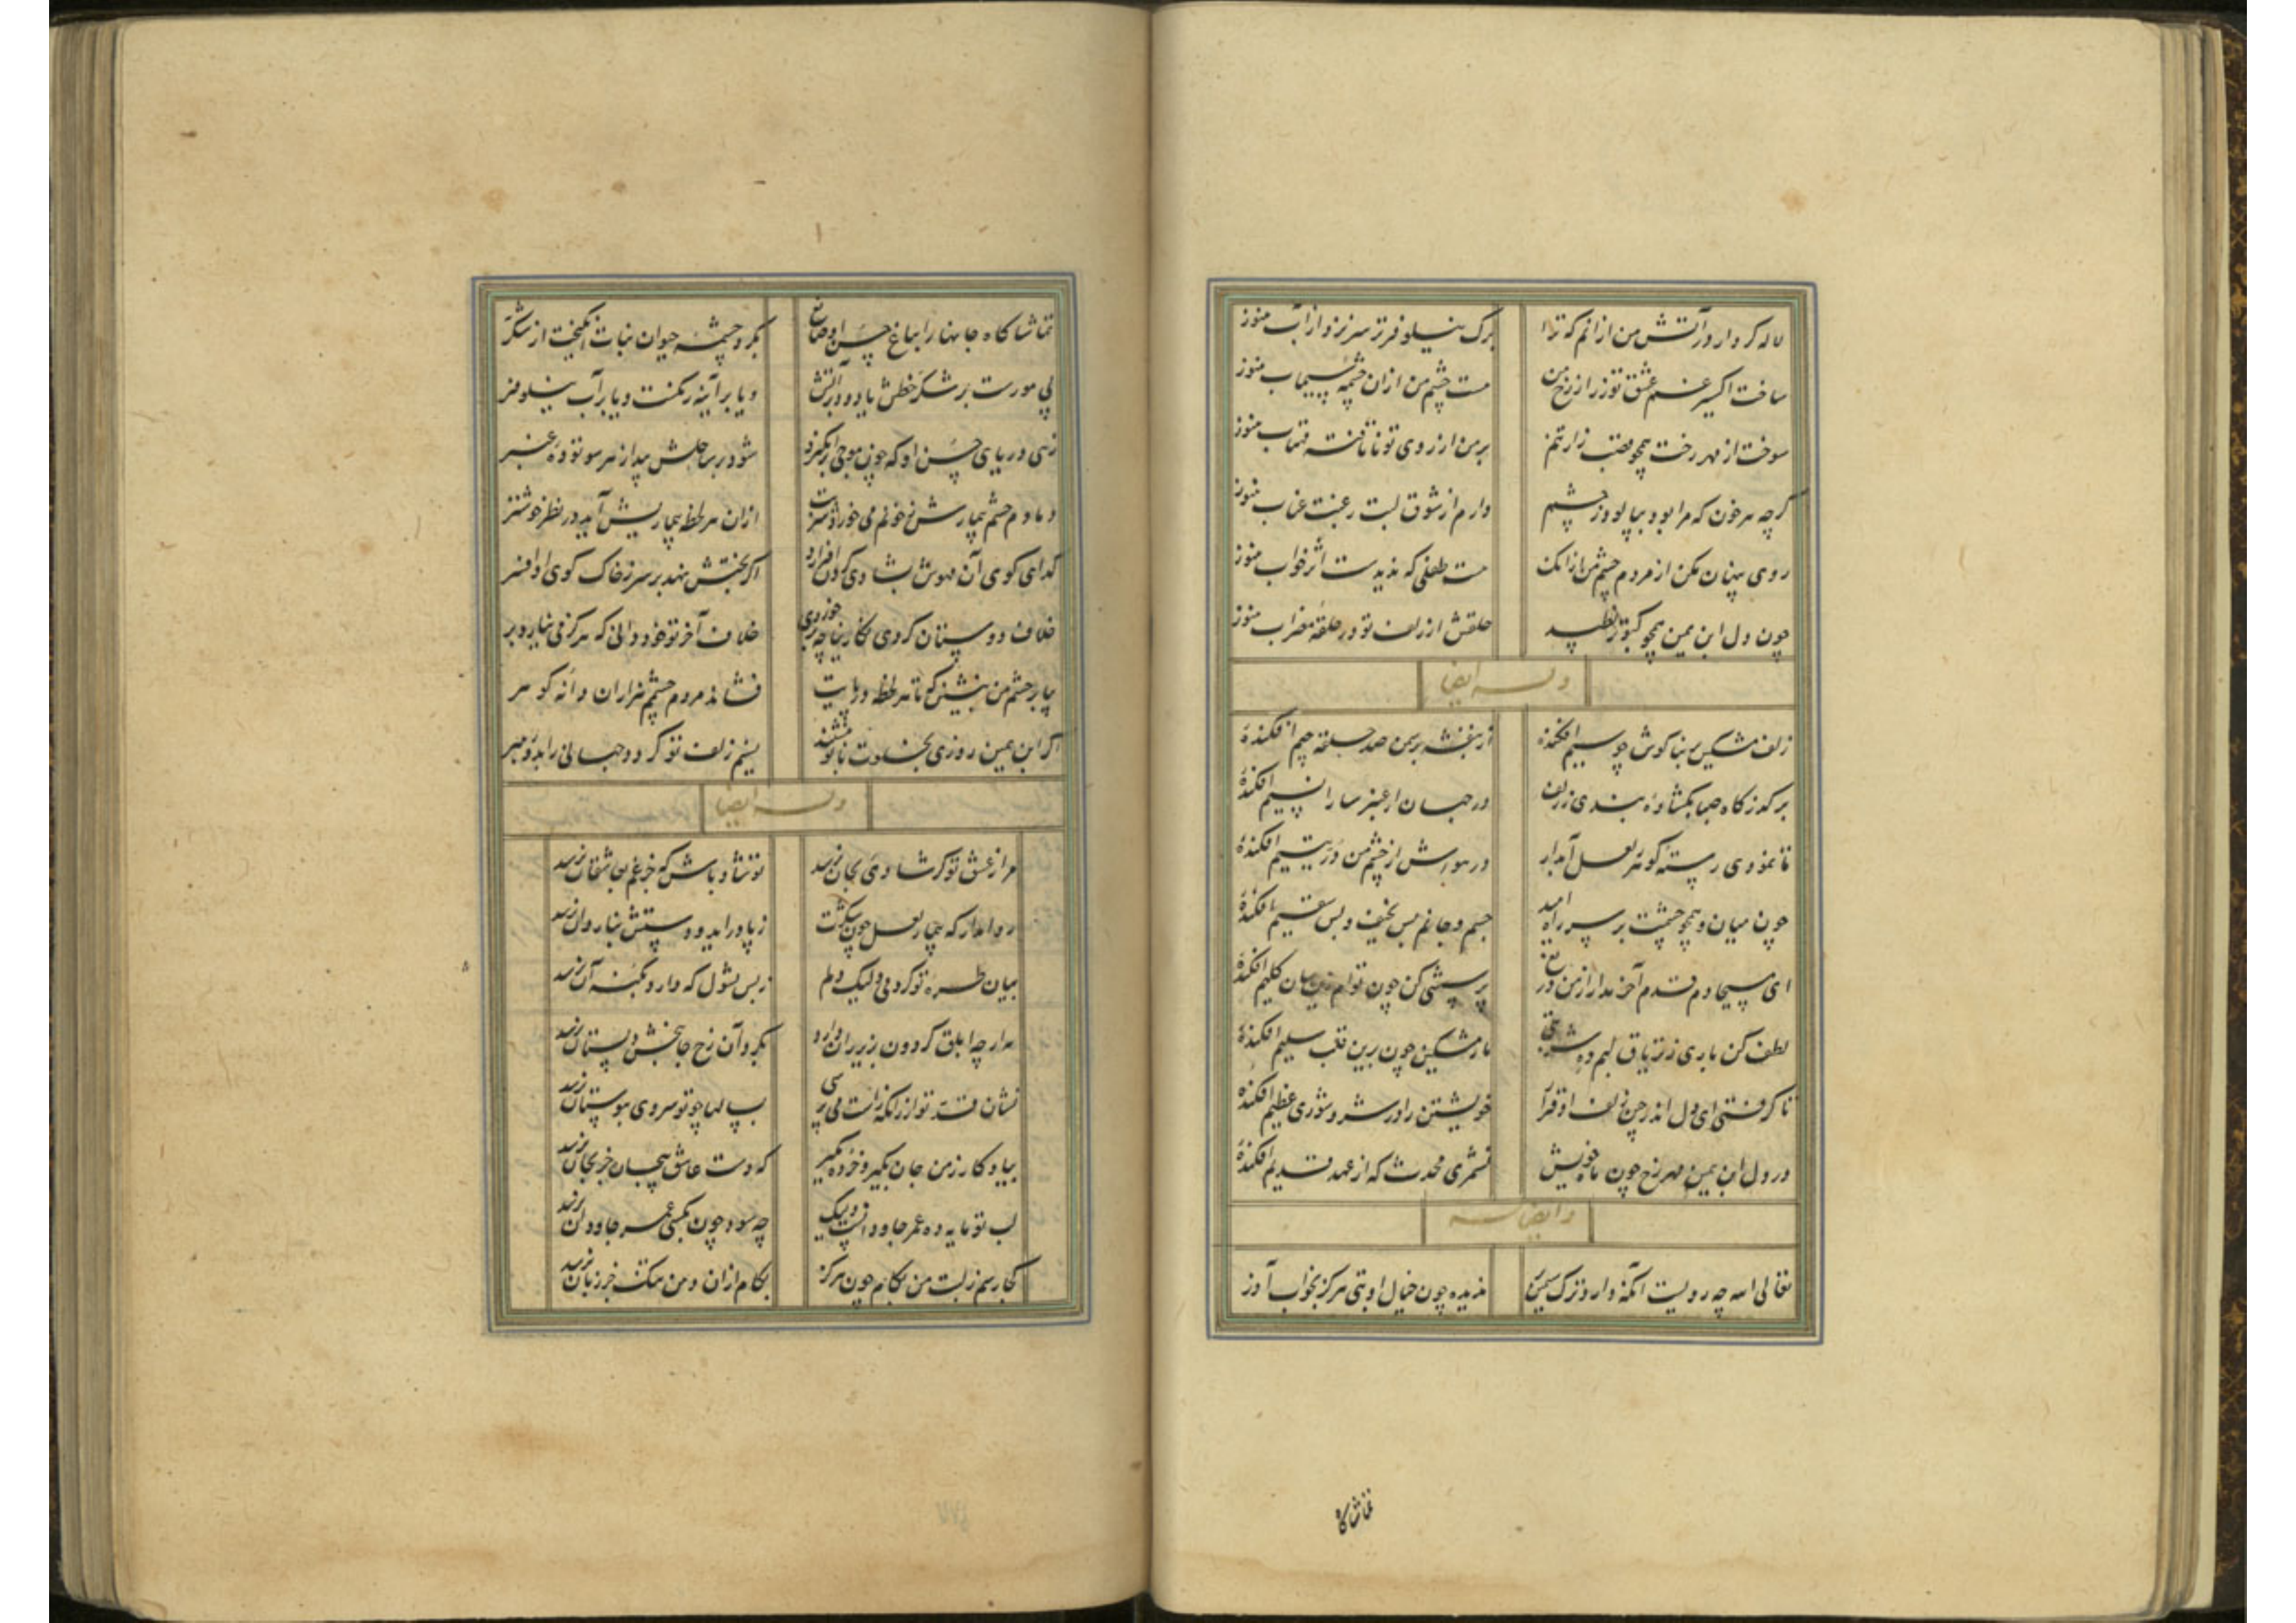 لاله کردار در آتش من ازانم که ترا برک نیلوفر تر سر نزد از آب هنوز
ساخت اکسیر غم عشق تو زر از رخ من هست چشم من ازان چشمه سیماب هنوز
سوخت از مهر رخت همچو قصب زار تنم بر من از روی تو ناتافته مهتاب هنوز
کرچه هر خون که مرا بود بپالود ز چشم دارم از شوق لبت رغبت عناب هنوز
روی پنهان مکن از مردم چشم من ازانک هست طفلی که ندیدست اثر خواب هنوز
چون دل ابن یمین همچو کبوتر نطپد حلقش از زلف تو در حلقه مضراب هنوز
وله ایضا
زلف مشکین بر بناکوش چو سیم افکندهٔ از بنفشه بر سمن صد حلقه جیم افکندهٔ
بر کذرکاه صبا بکشادهٔ بندی ز زلف در جهان از عنبر سارا نسیم افکندهٔ
تا نمودی رسته کوهر ز لعل آبدار در هوایش از چشم من در یتیم افکندهٔ
چون میان و همچو چشمت بر سر راه امید جسم و جانم بس نحیف و بس سقیم افکندهٔ
ای مسیحا دم قدم آخر مدار از من دریغ پرسشی کن چون توام زینسان کلیم افکندهٔ
لطف کن باری ز تریاق لبم ده شربتی مار مشکین چون برین قلب سلیم افکندهٔ
تا کرفتی ای دل اندر چین زلف او قرار خویشتن را در شر و شوری عظیم افکندهٔ
در دل ابن یمین مهر رخ چون ماه خویش نشمری محدث که از عهد قدیم افکندهٔ
وایضا له
تعالی الله چه رویست آنکه دارد ترک سیمین بر ندیده چون خیال او بتی هرکز بخواب آذر
تماشاکاه
تماشاکاه جانها را بباغ حسن او صانع بکرد چشمه حیوان نبات انکیخت از شکر
پی مورست بر شکر خطش یا دود بر آتش و یا بر آینه زنکست و یا بر آب نیلوفر
زهی دریای حسن او که چون موجی برانکیزد شود در ساحلش پیدا ز هر سو تودهٔ عنبر
دمادم چشم بیمارش ز خونم می خورد شربت ازان هر لحظه بیماریش آید در نظر خوشتر
کدای کوی آن مهوش بشادی کردن افرازد اکر بختش نهد بر سر ز خاک کوی او افسر
خلاف دوستان کردی نکارینا چه بر خوردی خلاف آخر تو خود دانی که هرکز می نیارد بر
بیا بر چشم من بنشین که تا هر لحظه در پایت فشاند مردم چشمم هزاران دانه کوهر
اکر ابن یمین روزی بخلوت با تو بنشیند نسیم زلف تو کردد جهانی را بدو رهبر
وله ایضا
مرا ز عشق تو کر شادیی بجان نرسد تو شاد باش که جز غم بعاشقان نرسد
روا مدار که بیچاره لعل چون شکرت ز پا در آید و دستش بناردان نرسد
بیان طره تو کردمی ولیک دلم ز بس بشول که دارد بکنه آن نرسد
مه ارچه ابلق کردون بزیر ران دارد بکرد آن رخ جانبخش دلستان نرسد
نشان قد تو از آنکه راست می پرسی بسالها چو تو سروی ببوستان نرسد
بیا و کار ز من جان بکیر و خرده مکیر که دست عاشق بیجان جز بجان نرسد
لب تو مایه ده عمر جاودانست ولیک چه سود چون بکسی عمر جاودان نرسد
کجا رسم ز لبت من بکام چون هرکز بکام ازان دهن تنک جز زبان نرسد